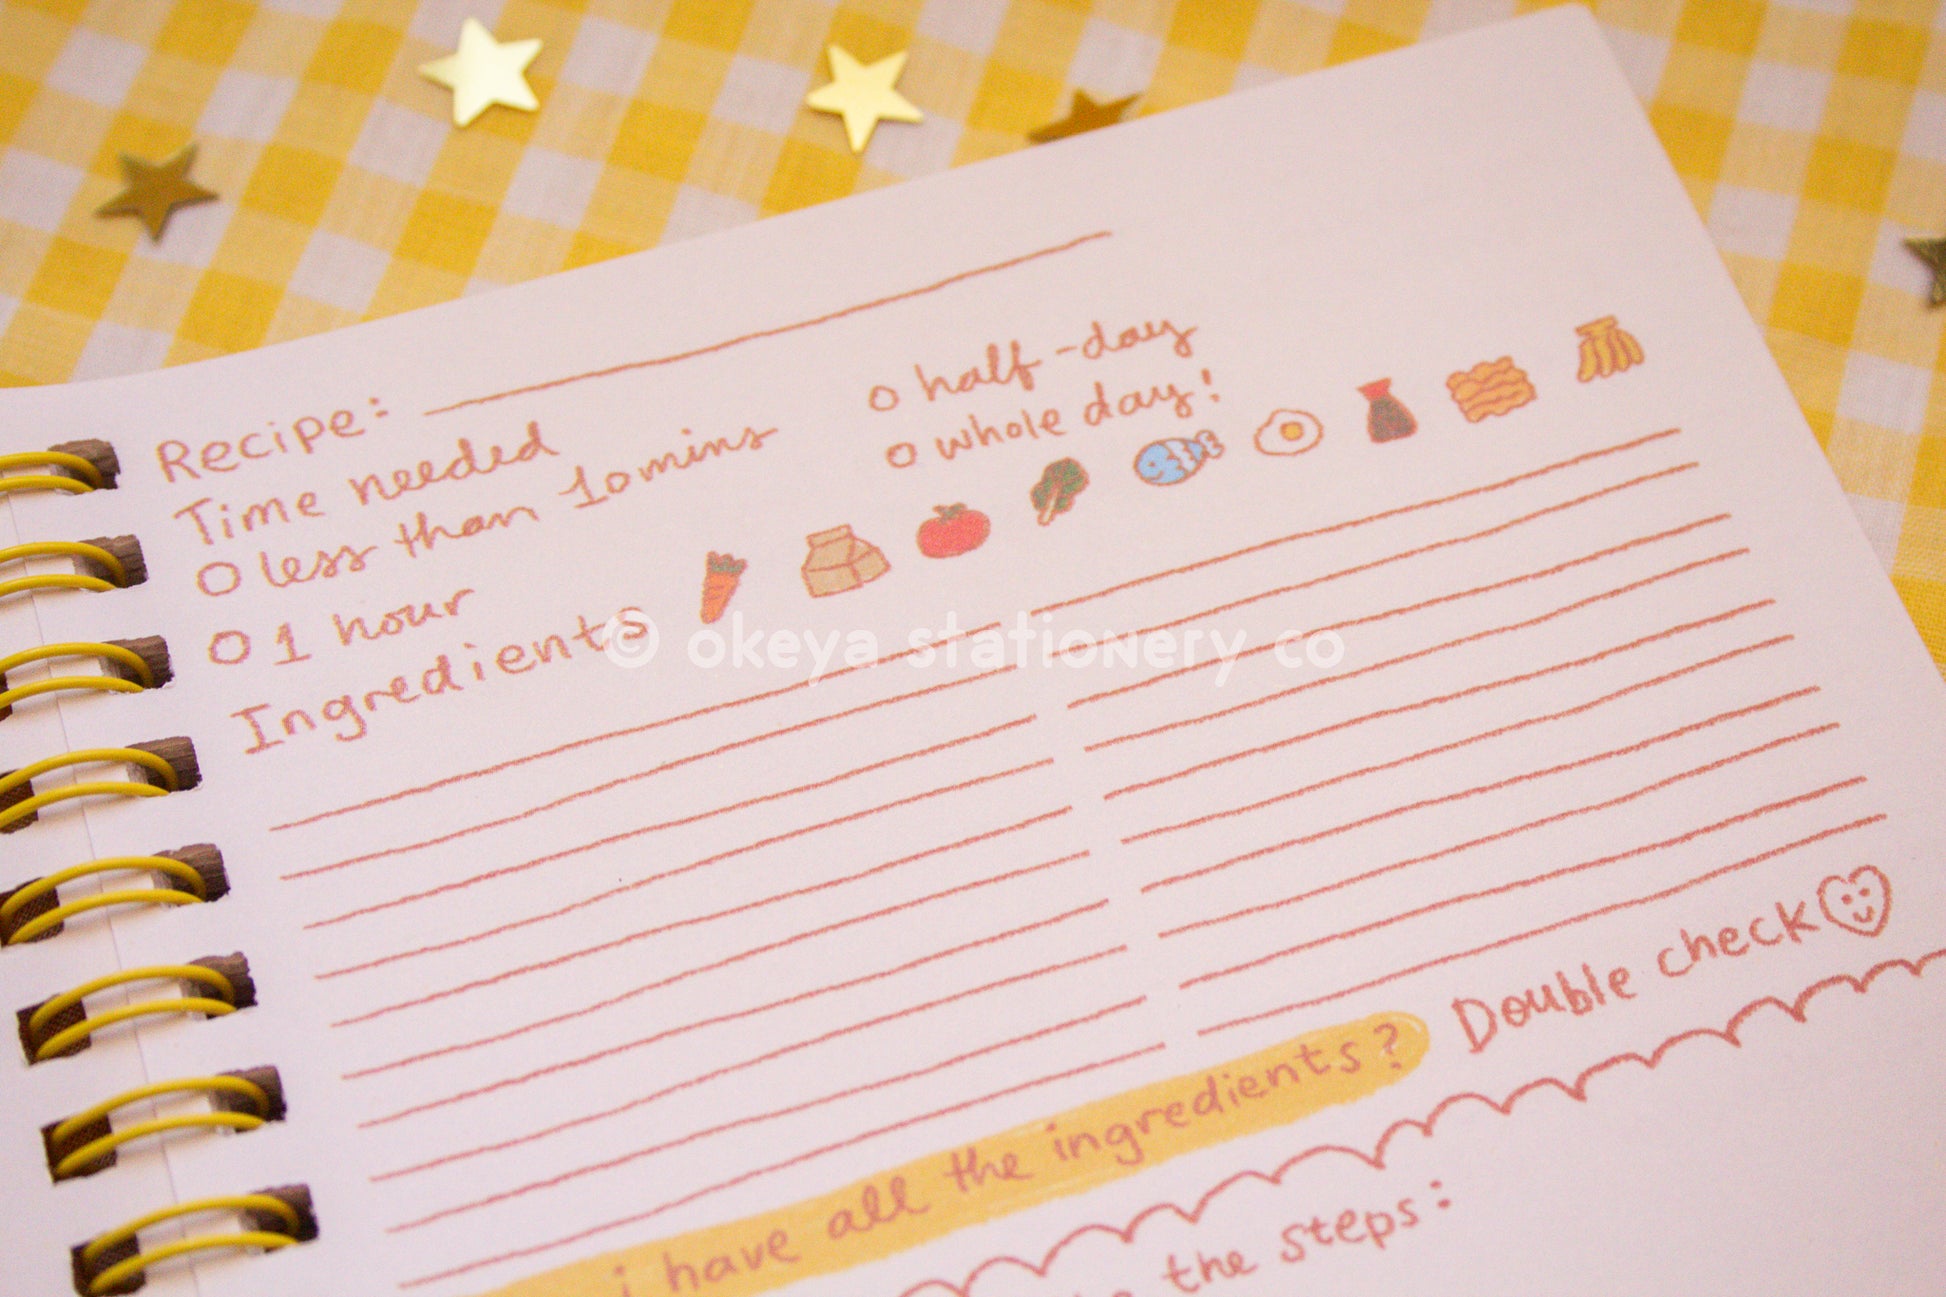 Recipe:
Time needed
less than 10 mins
half-day
1 hour
whole day!
Ingredients
© okeya stationery co
i have all the ingredients?
Double check
the steps: